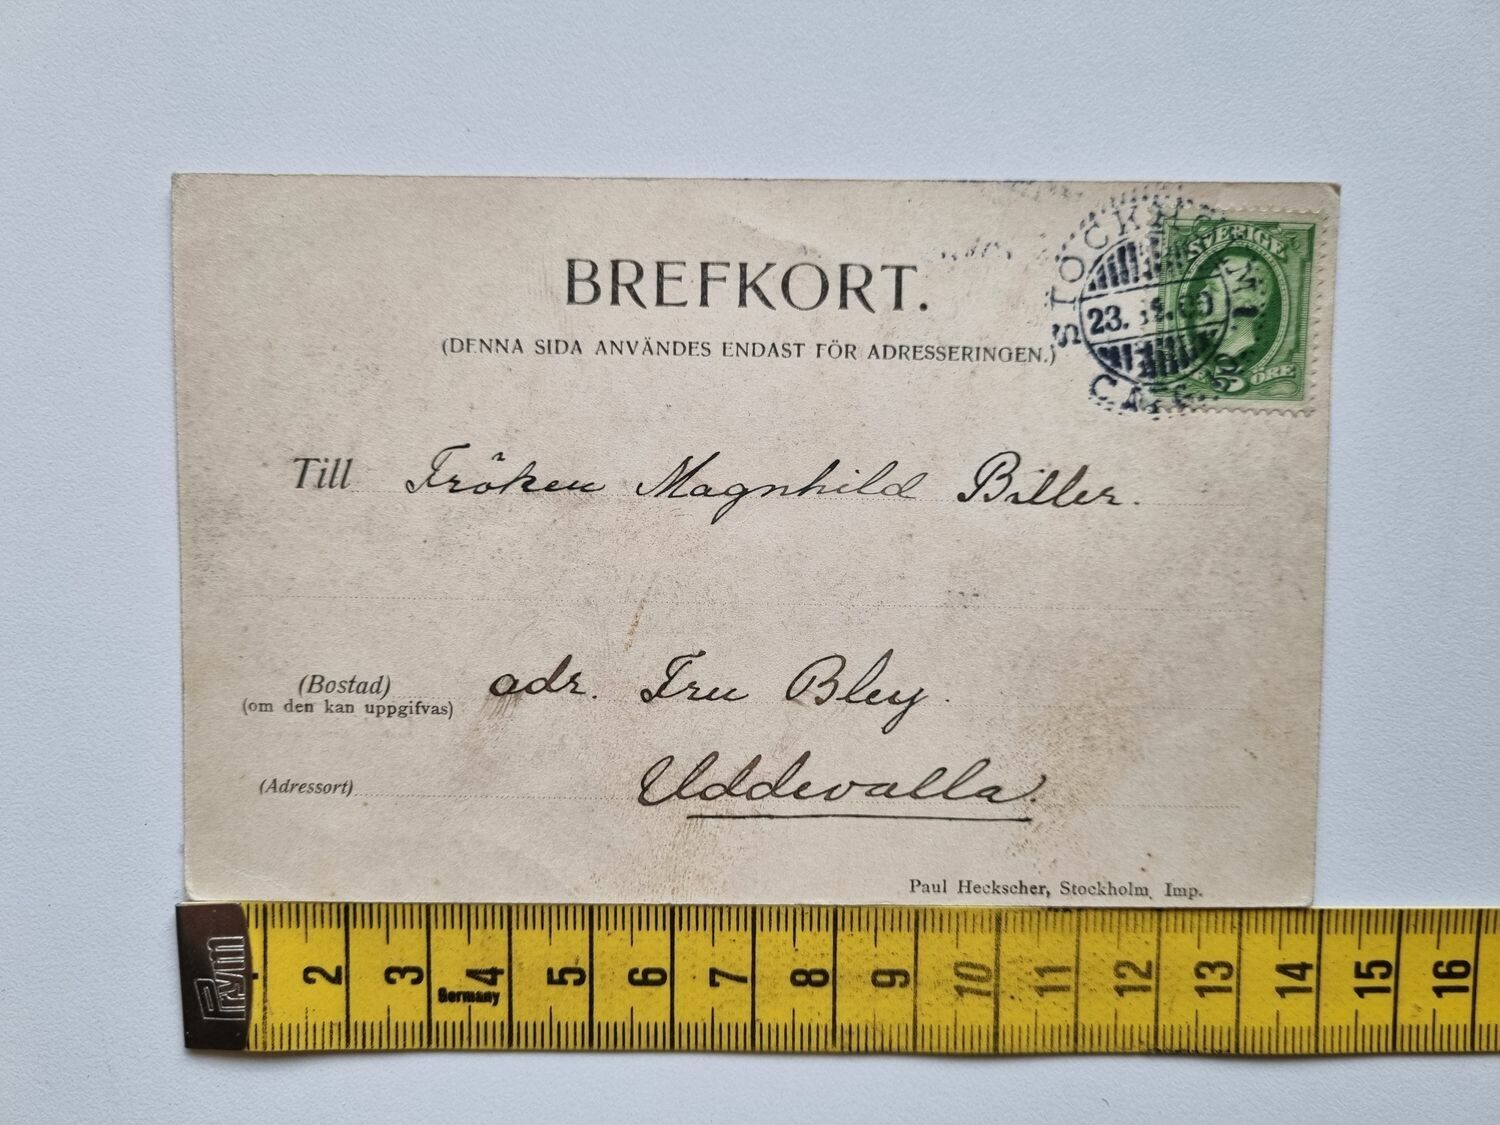 BREFKORT.
(DENNA SIDA ANVÄNDES ENDAST FÖR ADRESSERINGEN.)
SVERIGE
5 ÖRE
STOCKHOLM 1
23.
Till Fröken Magnhild Biller.
(Bostad) adr. Fru Bley.
(om den kan uppgifvas)
(Adressort) Uddevalla.
Paul Heckscher, Stockholm Imp.
Prym
2 3 4 5 6 7 8 9 10 11 12 13 14 15 16
Germany